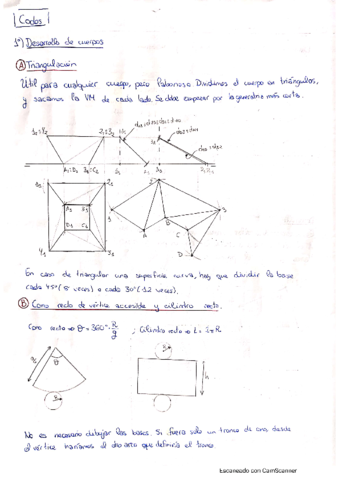 Codos
1º) Desarrollo de cuerpos
A Triangulación
Útil para cualquier cuerpo, pero laborioso. Dividimos el cuerpo en triángulos,
y sacamos la VM de cada lado. Se debe empezar por la generatriz más corta.
A B
C
D
En caso de triangular una superficie curva, hay que dividir la base
cada 45º (8 veces) o cada 30º (12 veces).
B Cono recto de vértice accesible y cilindro recto.
Cono recto → θ = 360º · R/g ; Cilindro recto → L = 2πR
R
h
R
No es necesario dibujar las bases. Si fuera solo un tronco de cono desde
el vértice trazamos el otro arco que definiría el tronco.
Escaneado con CamScanner